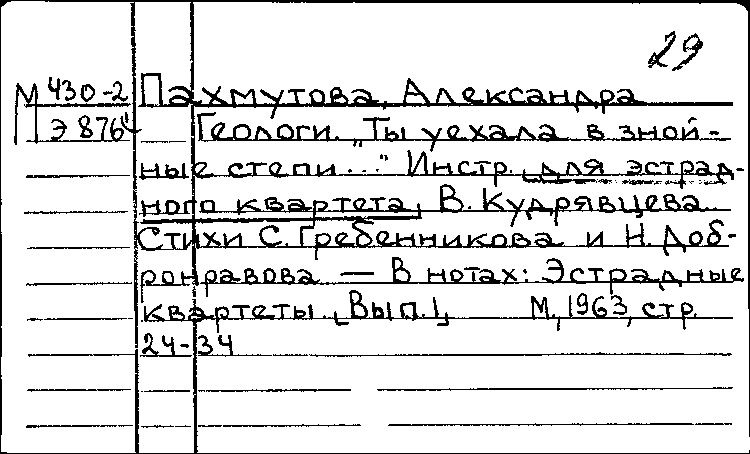 29
М 430-2 Пахмутова, Александра
Э 876 Геологи. „Ты уехала в зной-
ные степи..." Инстр. для эстрад-
ного квартета, В. Кудрявцева.
Стихи С. Гребенникова и Н. Доб-
ронравова — В нотах: Эстрадные
квартеты. [Вып. 1] М., 1963, стр.
24-34